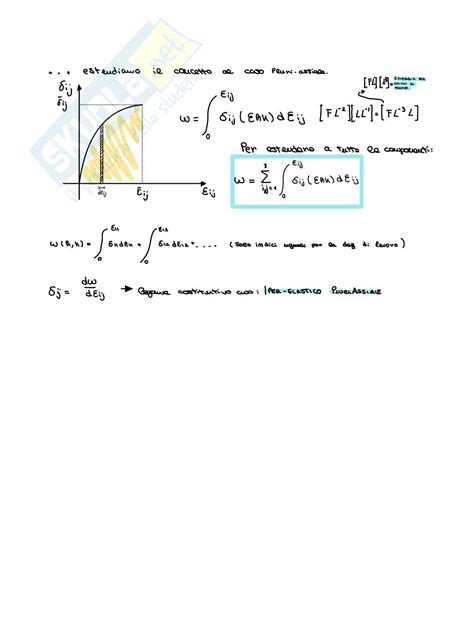 ... estendiamo il concetto al caso pluri-assiale.
σij
σ̄ij
dεij
ε̄ij
εij
ω = ∫₀^εij σij (εhk) dεij
[F L⁻²][L L⁻¹] = [F L⁻³ L]
[FL][L⁻³] =
Per estenderlo a tutte le componenti:
ω = Σ³i,j=1 ∫₀^εij σij (εhk) dεij
ω(h,k) = ∫₀^ε11 σ11 dε11 + ∫₀^ε12 σ12 dε12 + .... (solo indici uguali per la def di lavoro)
σij = dω/dεij → Legame costitutivo caso: IPER-ELASTICO PLURIASSIALE
SKUOLA.net